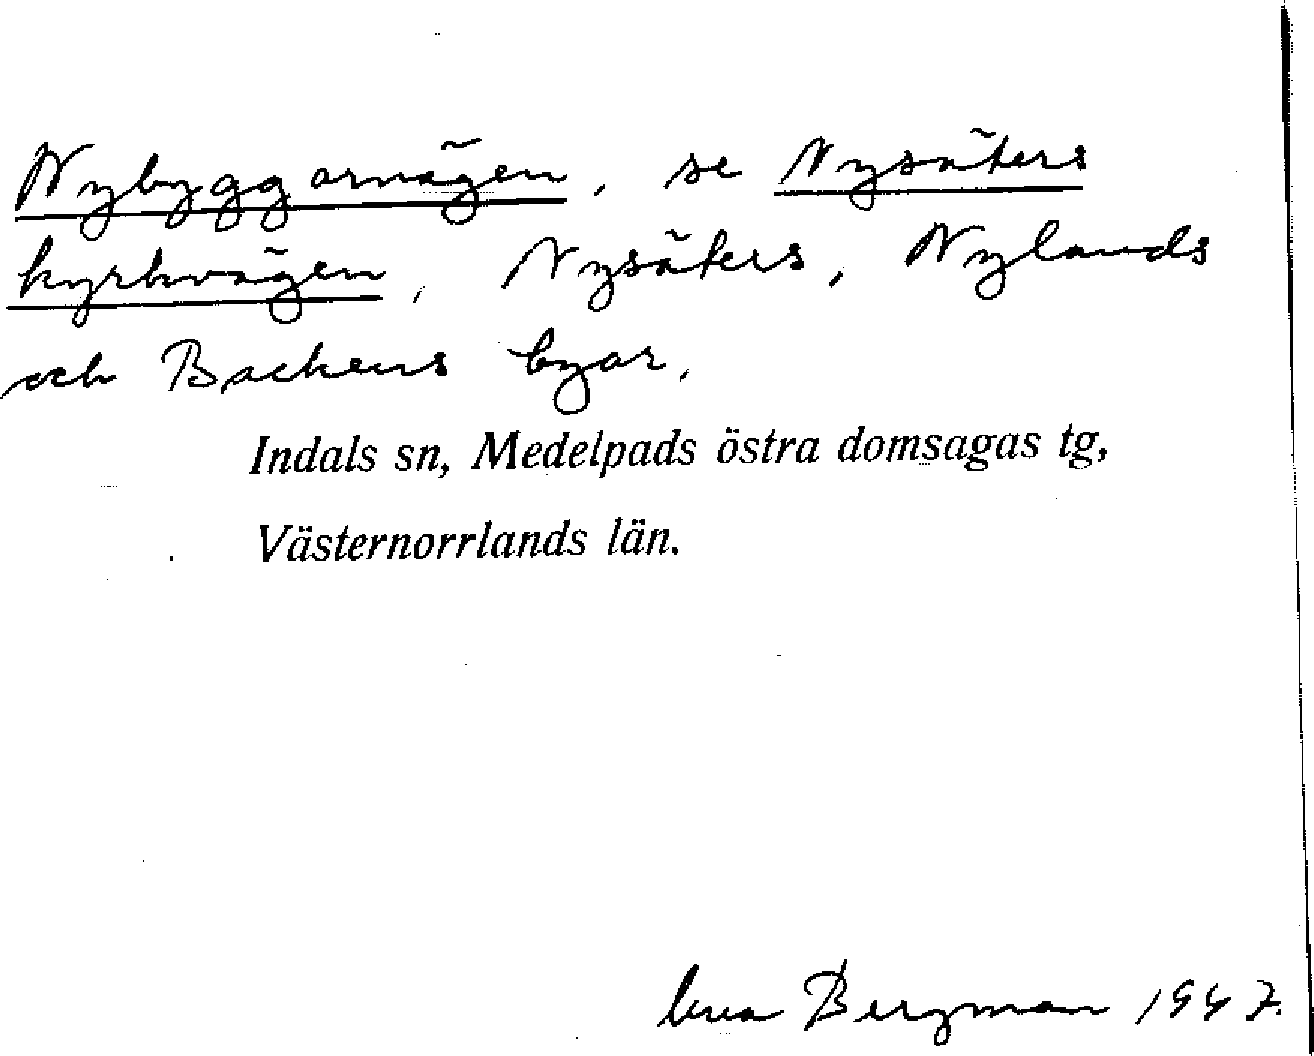 Nybyggarvägen, se Nysäters
kyrkvägen, Nysäters, Nylands
och Backens byar,
Indals sn, Medelpads östra domsagas tg,
Västernorrlands län.
Bergman 1947.